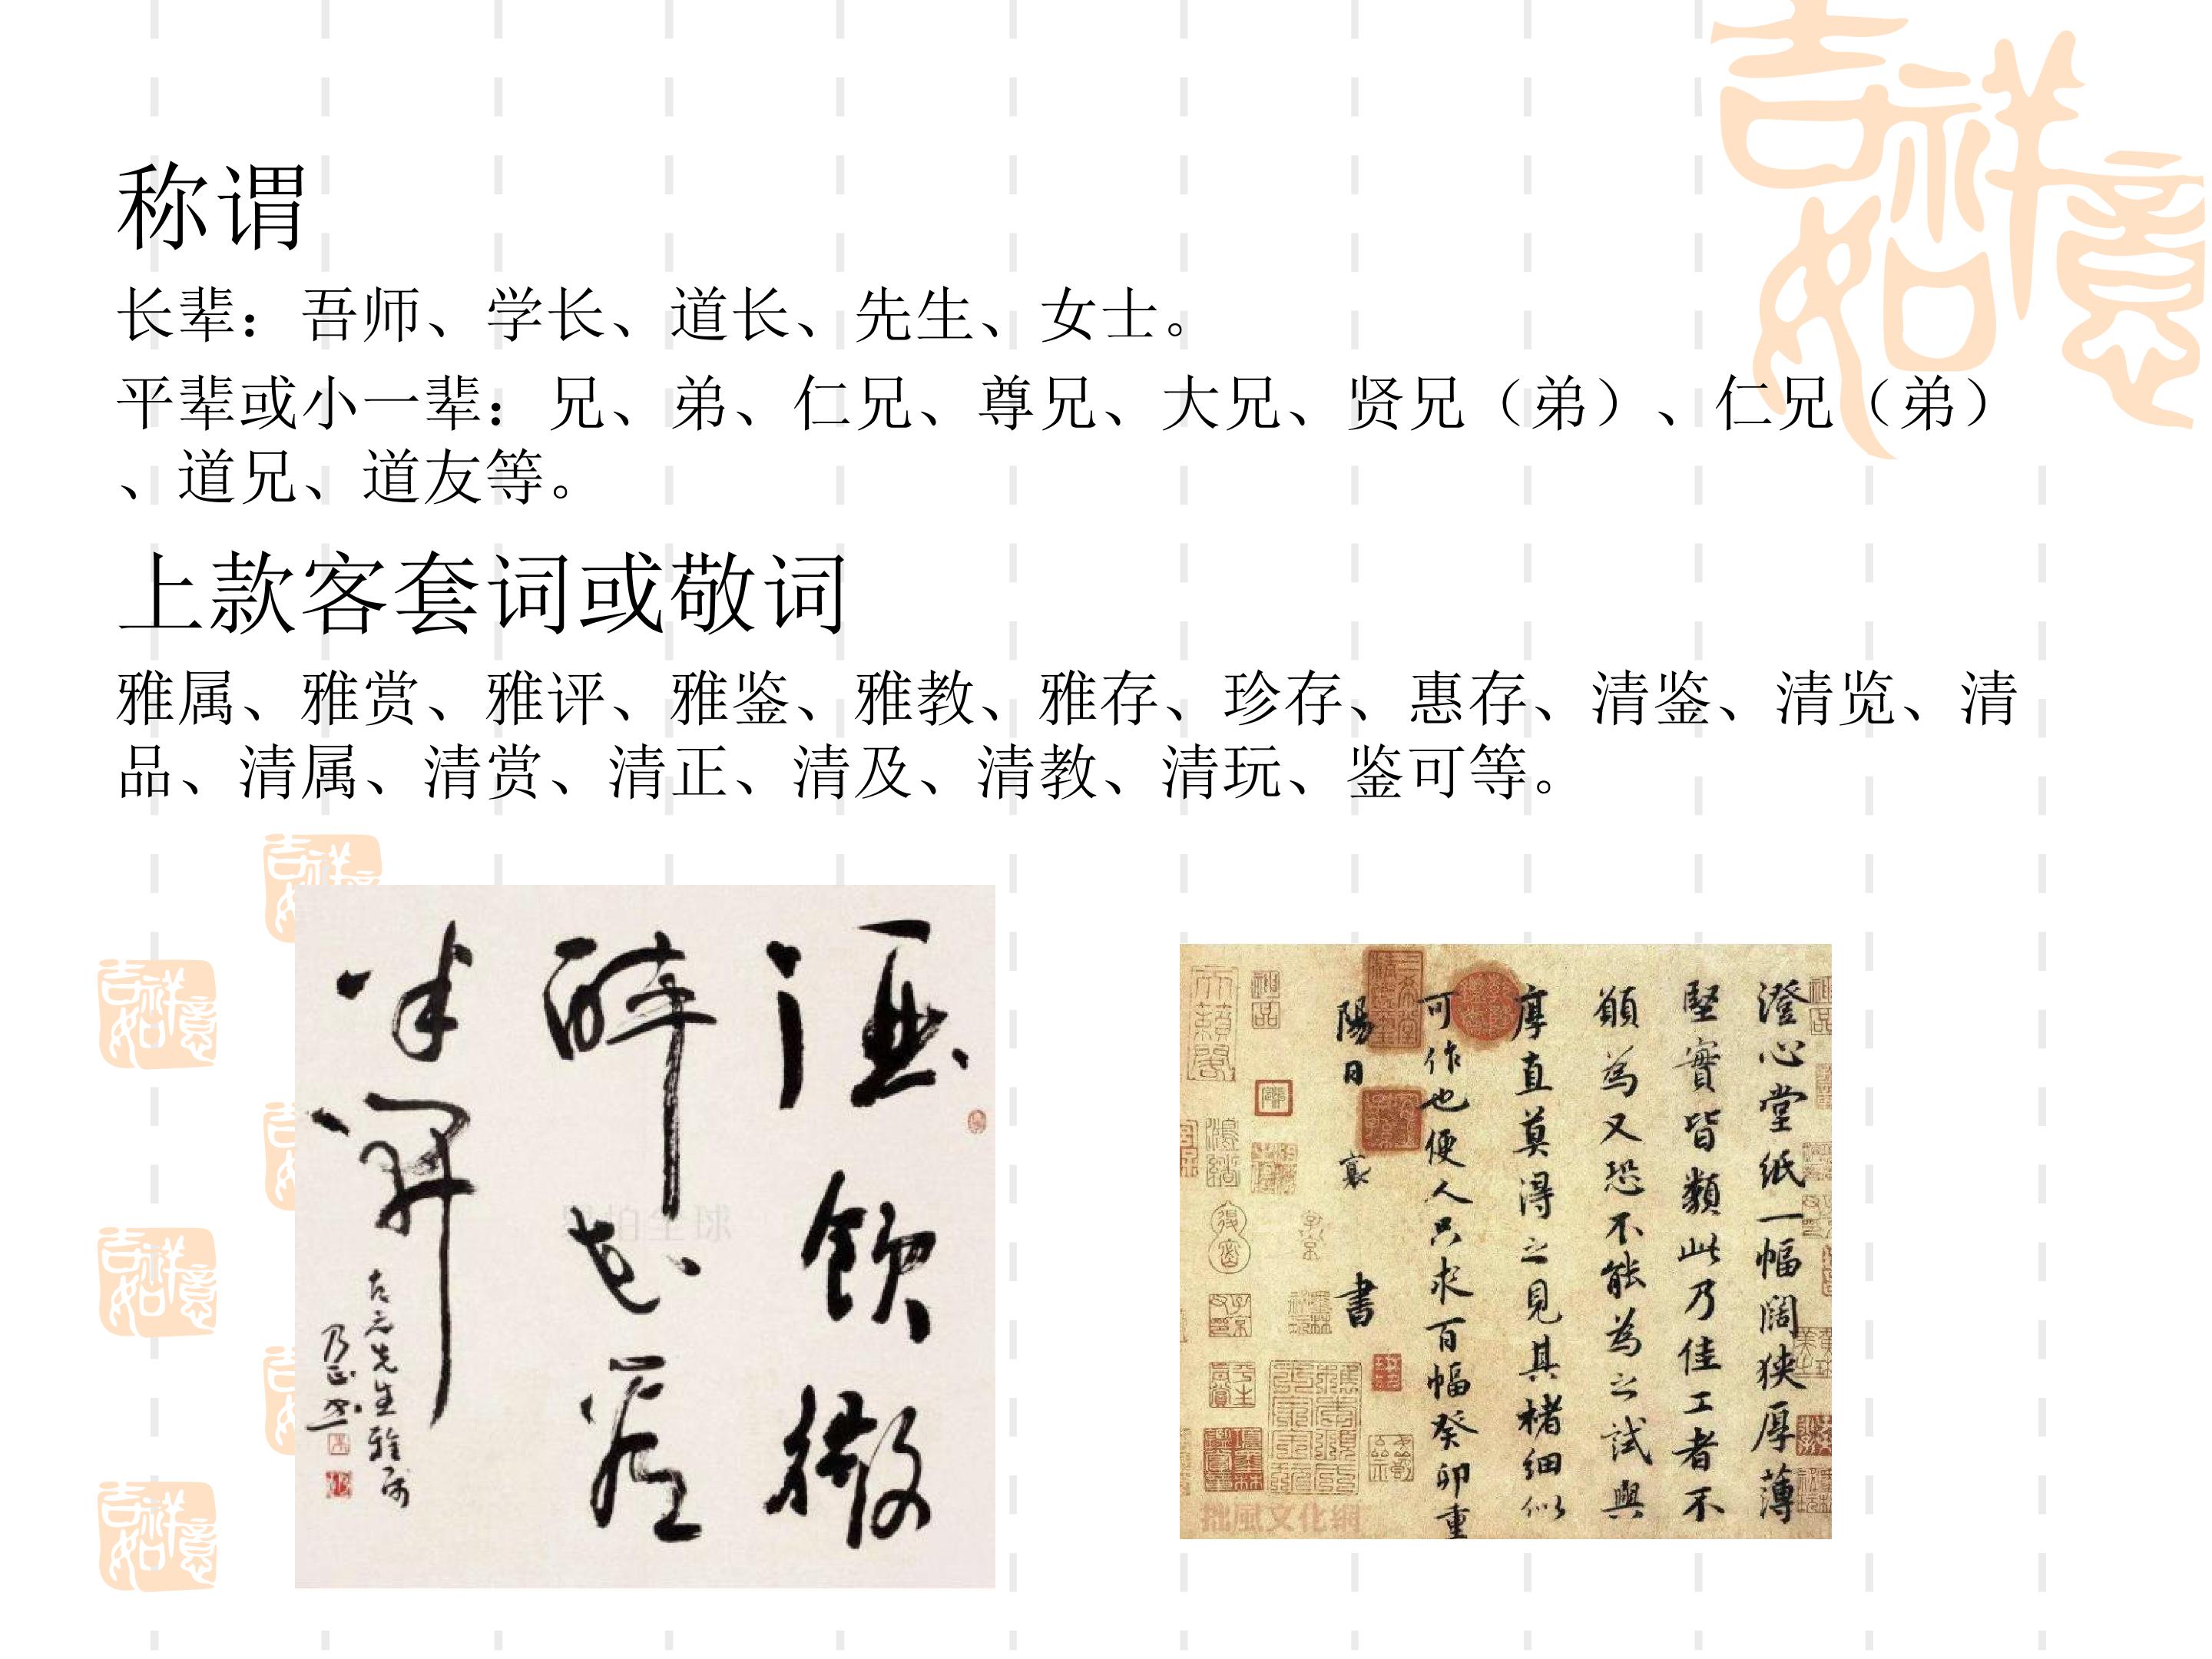 吉祥如意
称谓
长辈：吾师、学长、道长、先生、女士。
平辈或小一辈：兄、弟、仁兄、尊兄、大兄、贤兄（弟）、仁兄（弟）
、道兄、道友等。
上款客套词或敬词
雅属、雅赏、雅评、雅鉴、雅教、雅存、珍存、惠存、清鉴、清览、清
品、清属、清赏、清正、清及、清教、清玩、鉴可等。
酒饮微
醉花看
半開
先生雅属
乃正书
澄心堂纸一幅闊狭厚薄
堅實皆類此乃佳工者不
願為又恐不能為之試與
厚直莫得之見其楮細似
可作也便人只求百幅癸卯重
陽日 襄 書
拙風文化網